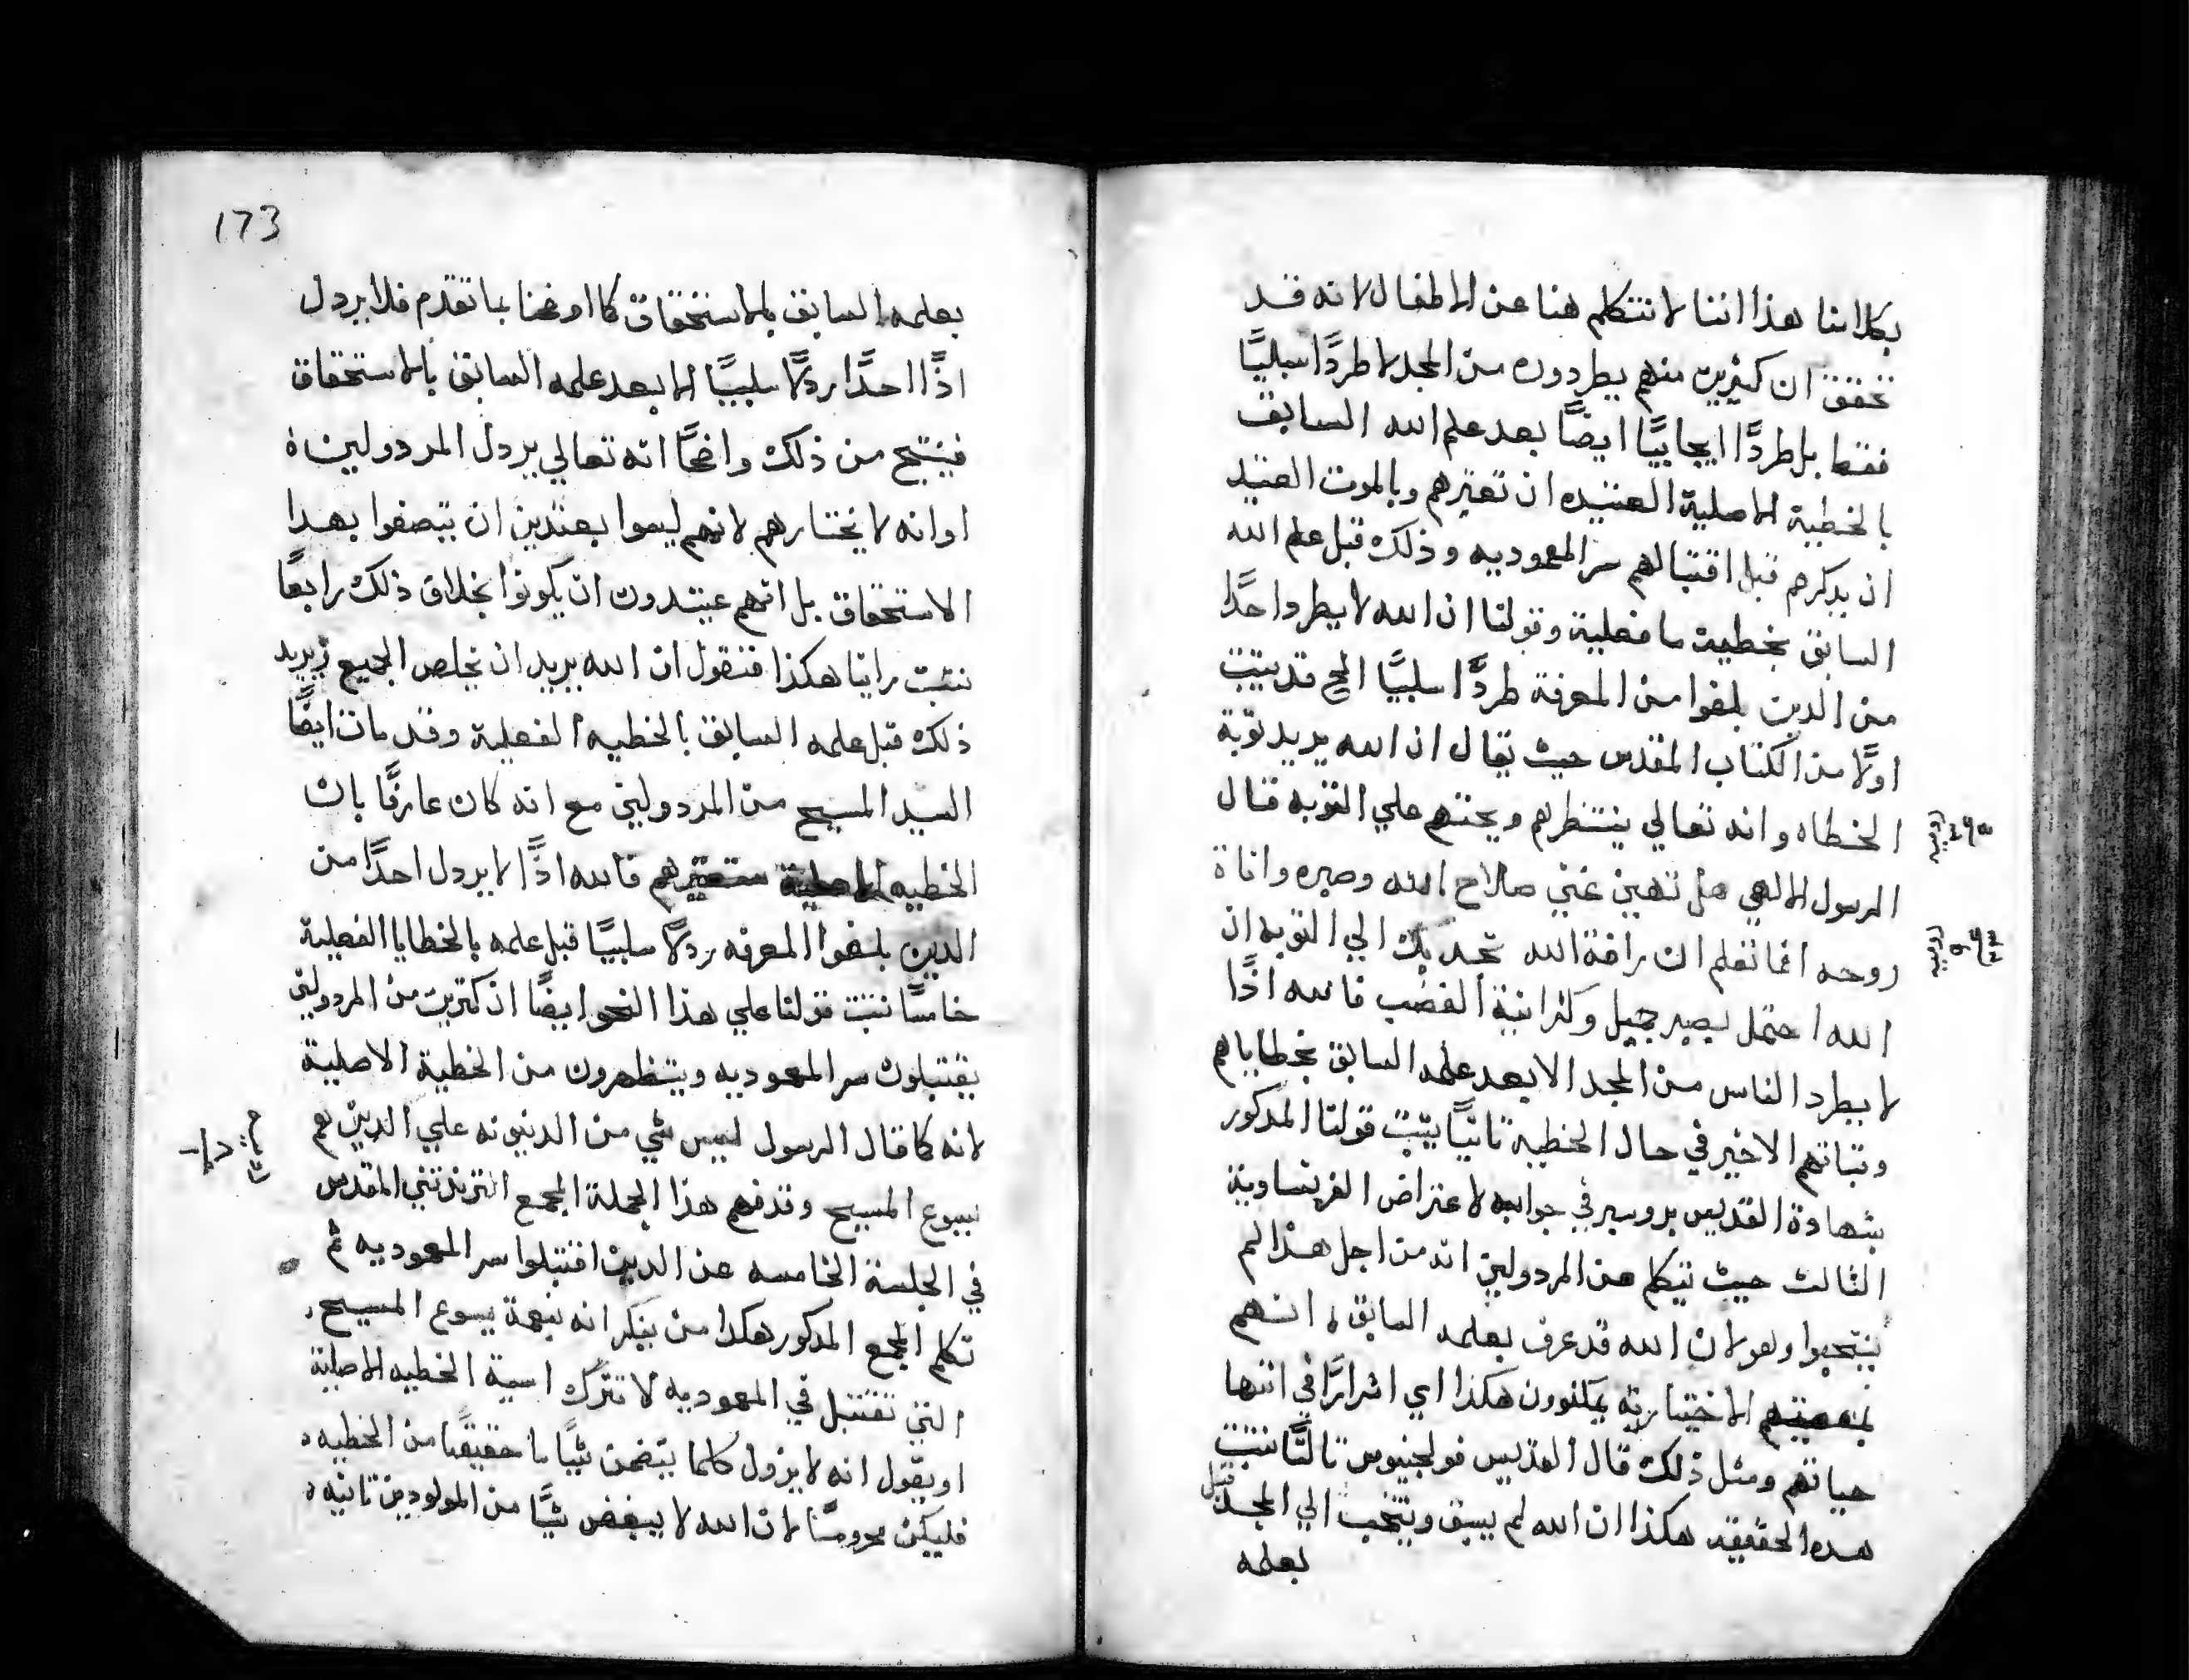 بكلامنا هذا اننا لا نتكلم هنا عن الاطفال لانه قد
تحقق ان كثيرين منهم يطردون من المجد لا طردًا سلبيًا
فقط بل طردًا ايجابيًا ايضًا بعد علم الله السابق
بالخطية الاصلية العتيده ان تعتريهم وبالموت العتيد
ان يدركهم قبل اقتبالهم سر المعموديه وذلك قبل علم الله
السابق بخطية ما فعلية وقولنا ان الله لا يطرد احدًا
من الدين بلغوا سن المعرفة طردًا سلبيًا الخ قد يثبت
اولًا من الكتاب المقدس حيث يقال ان الله يريد توبة
الخطاه وانه تعالي ينتظرهم ويحثهم علي التوبه قال
الرسول الالهي هل تهين غني صلاح الله وصبره واناة
روحه اما تعلم ان رافة الله تجدبك الي التوبه ان
الله احتمل بصبر جميل وكثر انية الغضب فالله اذًا
لا يطرد الناس من المجد الا بعد علمه السابق بخطاياهم
وثباتهم الاخير في حال الخطية ثانيًا يثبت قولنا المدكور
بشهادة القديس بروسبر في جوابه لاعتراض الفرنساوية
الثالث حيث تيكلم عن المردولين انه من اجل هذا لم
ينتخبوا وهو لان الله قد عرف بعلمه السابق انهم
بمعصيتهم الاختيارية يكونون هكذا اي اشرارًا في انتها
حياتهم ومثل ذلك قال القديس فولجنيوس ثالثًا نثبت
هده الحقيقه هكذا ان الله لم يسبق وينتخب الي المجد قبل
بعلمه
روميه
روميه
173
بعلمه السابق بالاستحقاق كما اوضحنا بما تقدم فلا يردل
اذًا احدًا ردلًا سلبيًا الا بعد علمه السابق بالاستحقاق
فينتج من ذلك واضحًا انه تعالي يردل المردولين
اوانه لا يختارهم لانهم ليسوا بعتدين ان يتصفوا بهدا
الاستحقاق بل انهم عتيدون ان يكونوا بخلاف ذلك رابعًا
نثبت راينا هكذا فنقول ان الله يريد ان يخلص الجميع ويريد
ذلك قبل علمه السابق بالخطيه الفعلية وقد مات ايضًا
السيد المسيح من المردولين مع انه كان عارفًا بان
الخطيه الاصلية ستعتريهم فالله اذًا لا يردل احدًا من
الدين بلغوا المعرفه ردلًا سلبيًا قبل علمه بالخطايا الفعلية
خامسًا نثبت قولنا علي هذا النحو ايضًا ان كثرين من المردولين
يقتبلون سر المعموديه ويتطهرون من الخطية الاصلية
لانه كما قال الرسول ليس شي من الدينونه علي الدين هم
بيسوع المسيح وقد فهم هذا الجملة المجمع التريدنتيني المقدس
في الجلسة الخامسه عن الدين اقتبلوا سر المعموديه ثم
تكلم المجمع المدكور هكدا من ينكر انه بنعمة يسوع المسيح
التي تقتبل في المعموديه لا تترك اسية الخطيه الاصلية
او يقول انه لا يزول كلما يتضمن شيًا ما حقيقيًا من الخطيه
فليكن محرومًا لان الله لا يبغض شيًا من المولودين ثانيه